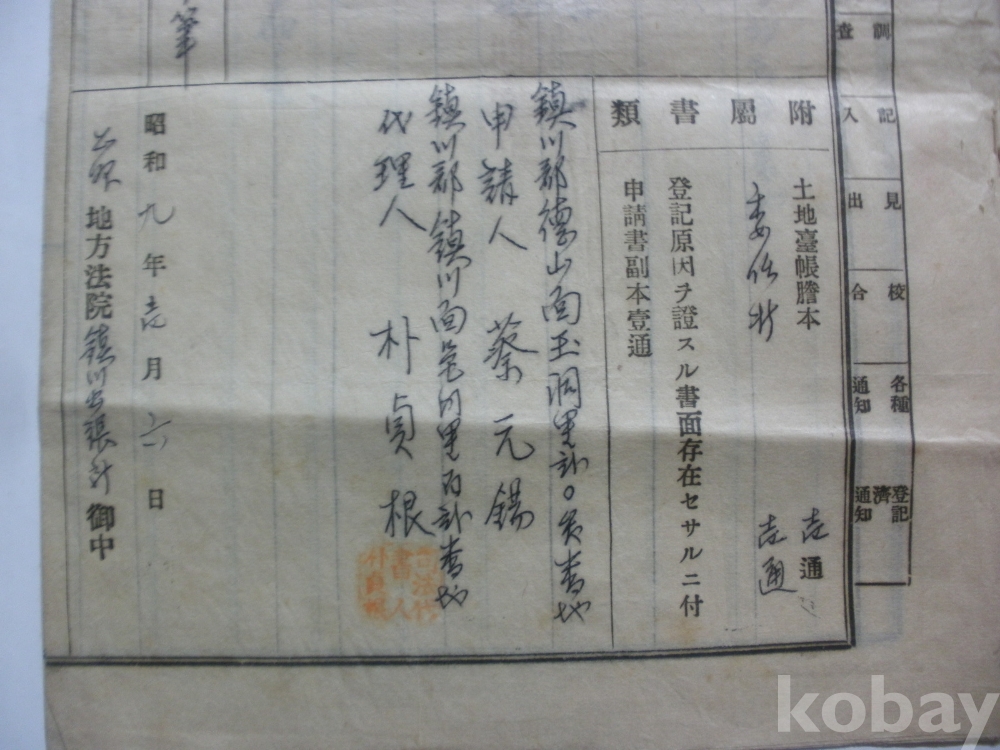 調査
記入
見出
校合
各種通知
登記濟通知
附屬書類
土地臺帳謄本 壱通
委任狀 壱通
登記原因ヲ證スル書面存在セサルニ付
申請書副本壹通
鎭川郡德山面玉洞里 番地
申請人 蔡元錫
鎭川郡鎭川面 里 番地
代理人 朴貞根
司法代書人朴貞根
昭和九年壱月六日
地方法院鎭川出張所御中
筆
kobay